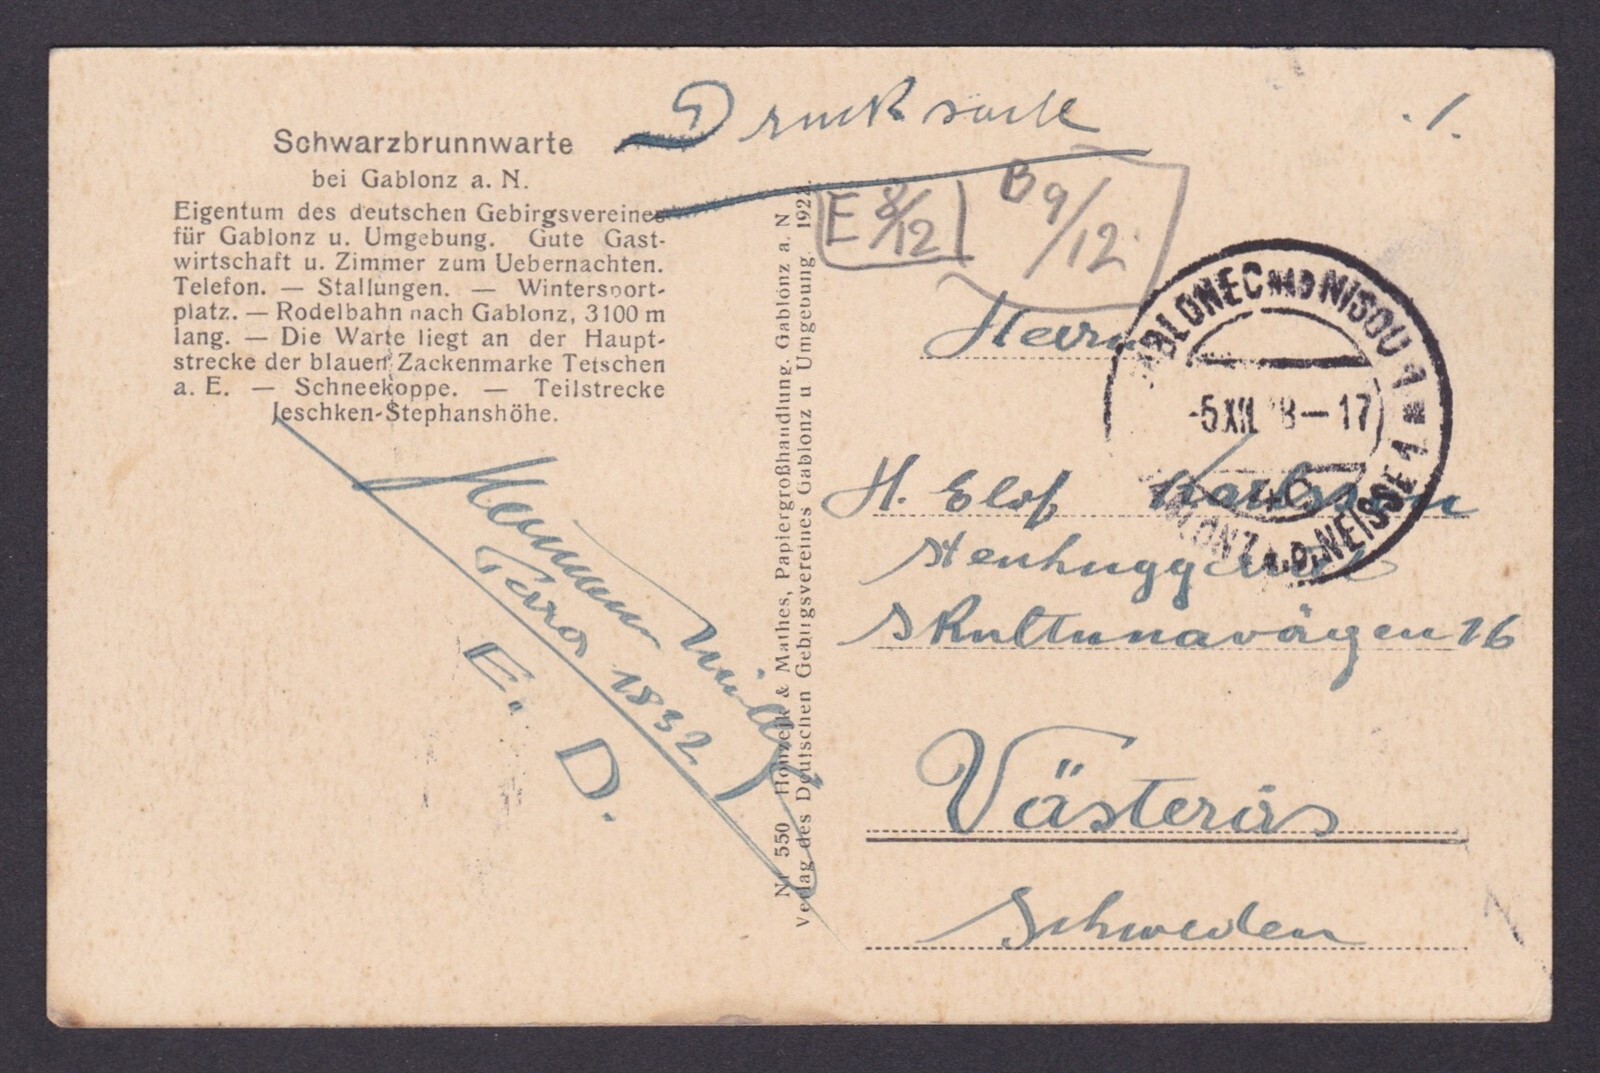 Drucksache
Schwarzbrunnwarte
bei Gablonz a. N.
Eigentum des deutschen Gebirgsvereines
für Gablonz u. Umgebung. Gute Gast-
wirtschaft u. Zimmer zum Uebernachten.
Telefon. — Stallungen. — Wintersport-
platz. — Rodelbahn nach Gablonz, 3100 m
lang. — Die Warte liegt an der Haupt-
strecke der blauen Zackenmarke Tetschen
a. E. — Schneekoppe. — Teilstrecke
Jeschken-Stephanshöhe.
Hermann
1832
E. D.
Nr 550 & Mathes, Papiergroßhandlung, Gablonz a. N
Verlag des Deutschen Gebirgsvereines Gablonz u Umgebung. 1922.
E 8/12
B 9/12
JABLONEC NAD NISOU 1
-5 XII 8-17
GABLONZ A.D. NEISSE 1
Herrn
H. Elof Karlsson
Stenhuggare
Skultunavägen 16
Västerås
Schweden